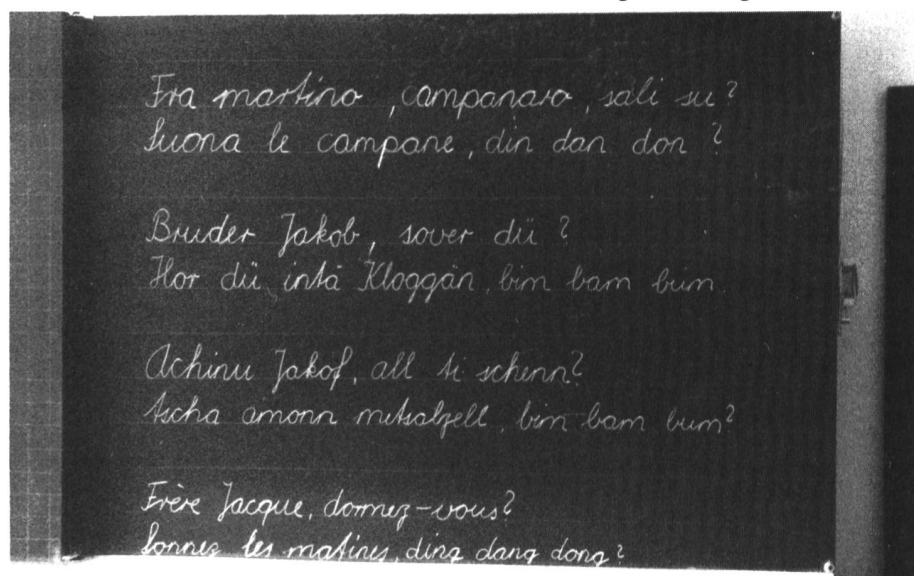 Fra martino, campanaro, sali su?
Suona le campane, din dan don?
Bruder Jakob, sover dü?
Hor dü intä Kloggän, bim bam bum.
Achinu Jakof, all ti schenn?
tscha amonn metsalzell, bim bam bum?
Frère Jacque, dormez-vous?
Sonnez les matines, ding dang dong?